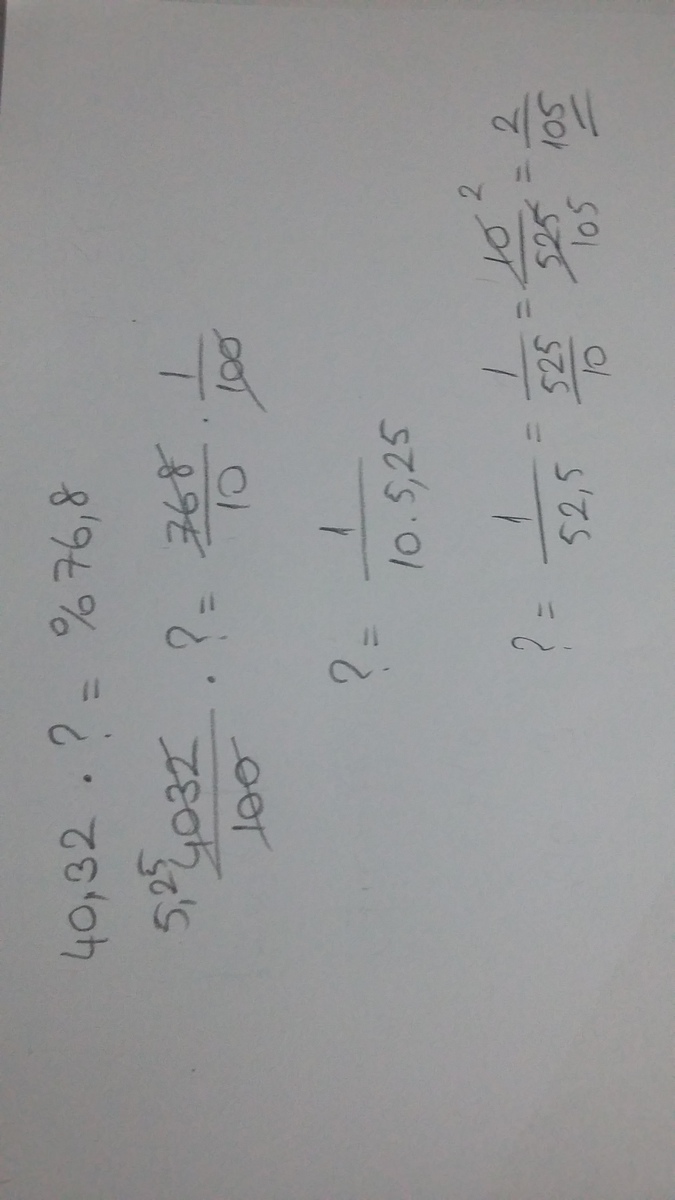 40,32 . ? = %76,8
5,25 4032/100 . ? = 768/10 . 1/100
? = 1/10.5,25
? = 1/52,5 = 1/525/10 = 10 2/525 105 = 2/105